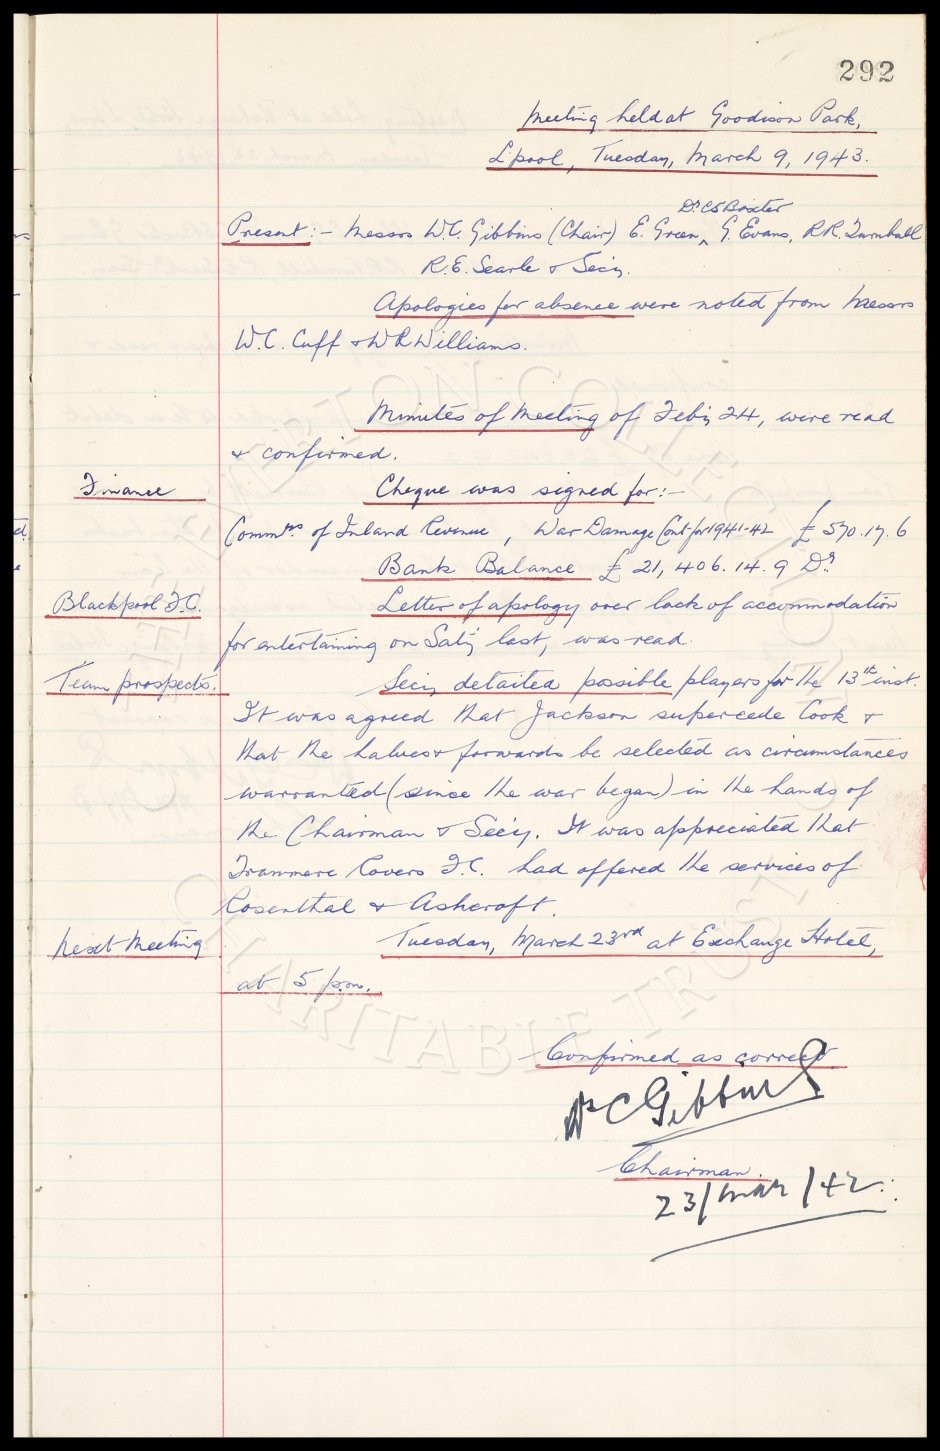 292
Meeting held at Goodison Park,
L'pool, Tuesday, March 9, 1943.
Dr. C S Baxter
Present :- Messrs W.C. Gibbins (Chair) E. Green, G. Evans, R.R. Turnbull
R.E. Searle & Sec'y.
Apologies for absence were noted from Messrs
W.C. Cuff & W R Williams.
Minutes of Meeting of Feb'y 24, were read
& confirmed.
Finance
Cheque was signed for:-
Commrs of Inland Revenue, War Damage Cont. for 1941-42 £ 570.17.6
Bank Balance £ 21,406.14.9 Dr.
Blackpool F.C.
Letter of apology over lack of accommodation
for entertaining on Sat'y last, was read.
Team prospects.
Sec'y detailed possible players for the 13th inst.
It was agreed that Jackson supercede Cook &
that the halves & forwards be selected as circumstances
warranted (since the war began) in the hands of
the Chairman & Sec'y. It was appreciated that
Tranmere Rovers F.C. had offered the services of
Rosenthal & Ashcroft.
Next Meeting
Tuesday, March 23rd at Exchange Hotel,
at 5 p.m.
Confirmed as correct
W C Gibbins
Chairman.
23/Mar/42
THE EVERTON COLLECTION
CHARITABLE TRUST